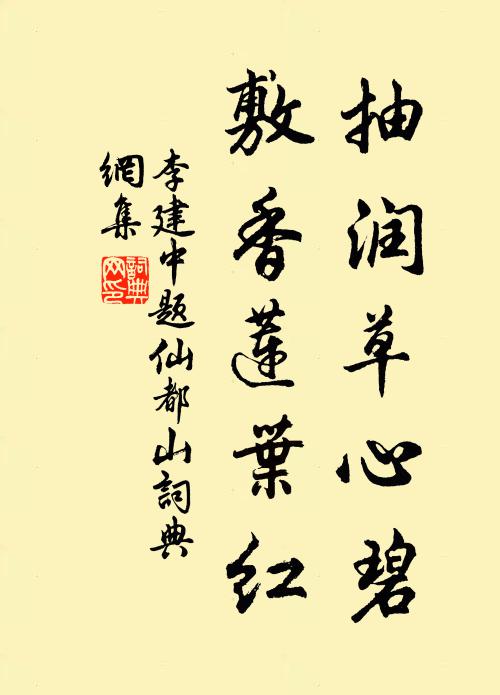 抽润草心碧
敷香莲葉红
李建中题仙都山詞典
網集
詞典
网印